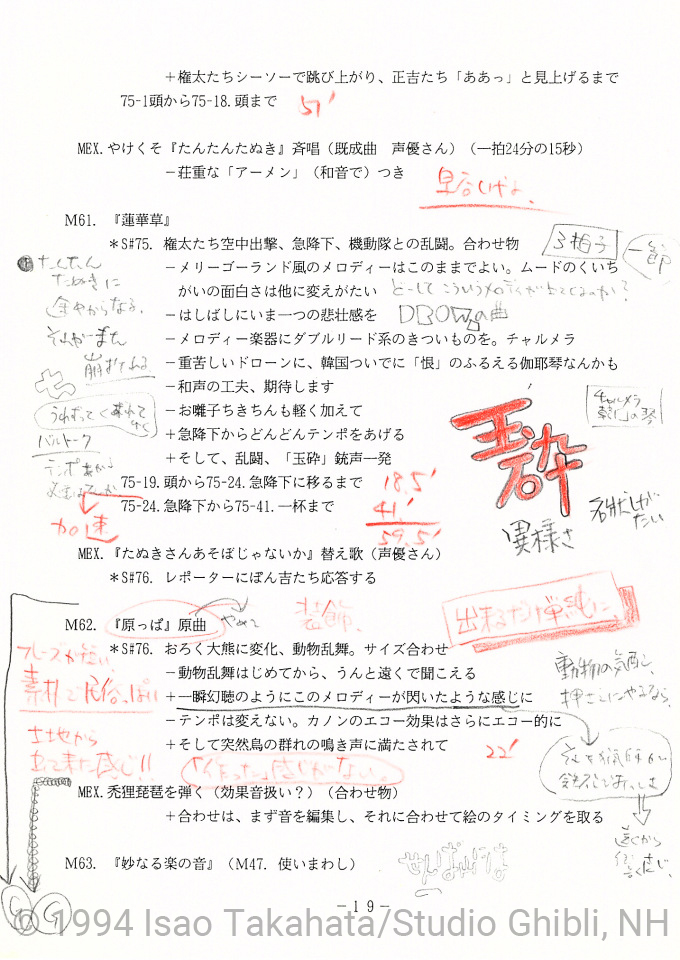 ＋権太たちシーソーで跳び上がり、正吉たち「ああっ」と見上げるまで
75-1頭から75-18.頭まで 51′
MEX.やけくそ『たんたんたぬき』斉唱（既成曲　声優さん）（一拍24分の15秒）
－荘重な「アーメン」（和音で）つき
M61. 『蓮華草』
＊S#75. 権太たち空中出撃、急降下、機動隊との乱闘。合わせ物
3拍子
一節
－メリーゴーランド風のメロディーはこのままでよい。ムードのくいち
がいの面白さは他に変えがたい
－はしばしにいま一つの悲壮感を
の曲
－メロディー楽器にダブルリード系のきついものを。チャルメラ
－重苦しいドローンに、韓国ついでに「恨」のふるえる伽耶琴なんかも
－和声の工夫、期待します
－お囃子ちきちんも軽く加えて
＋急降下からどんどんテンポをあげる
＋そして、乱闘、「玉砕」銃声一発
75-19. 頭から75-24. 急降下に移るまで 18.5′
75-24. 急降下から75-41. 一杯まで 41.′
59.5′
たんたん
たぬきに
バルトーク
加速
チャルメラ
玉砕
異様さ
名状しがたい
MEX.『たぬきさんあそぼじゃないか』替え歌（声優さん）
＊S#76. レポーターにぽん吉たち応答する
M62. 『原っぱ』原曲 やめて
装飾
出来るだけ単純に、
＊S#76. おろく大熊に変化、動物乱舞。サイズ合わせ
－動物乱舞はじめてから、うんと遠くで聞こえる
＋一瞬幻聴のようにこのメロディーが閃いたような感じに
－テンポは変えない。カノンのエコー効果はさらにエコー的に
＋そして突然鳥の群れの鳴き声に満たされて 22′
フレーズが短い、
素材で民俗っぽい
土地から
出て来た感じ!!
「作った」感じがない。
動物の気配
遠くから
MEX.禿狸琵琶を弾く（効果音扱い？）（合わせ物）
＋合わせは、まず音を編集し、それに合わせて絵のタイミングを取る
M63. 『妙なる楽の音』（M47. 使いまわし）
－１９－
© 1994 Isao Takahata/Studio Ghibli, NH